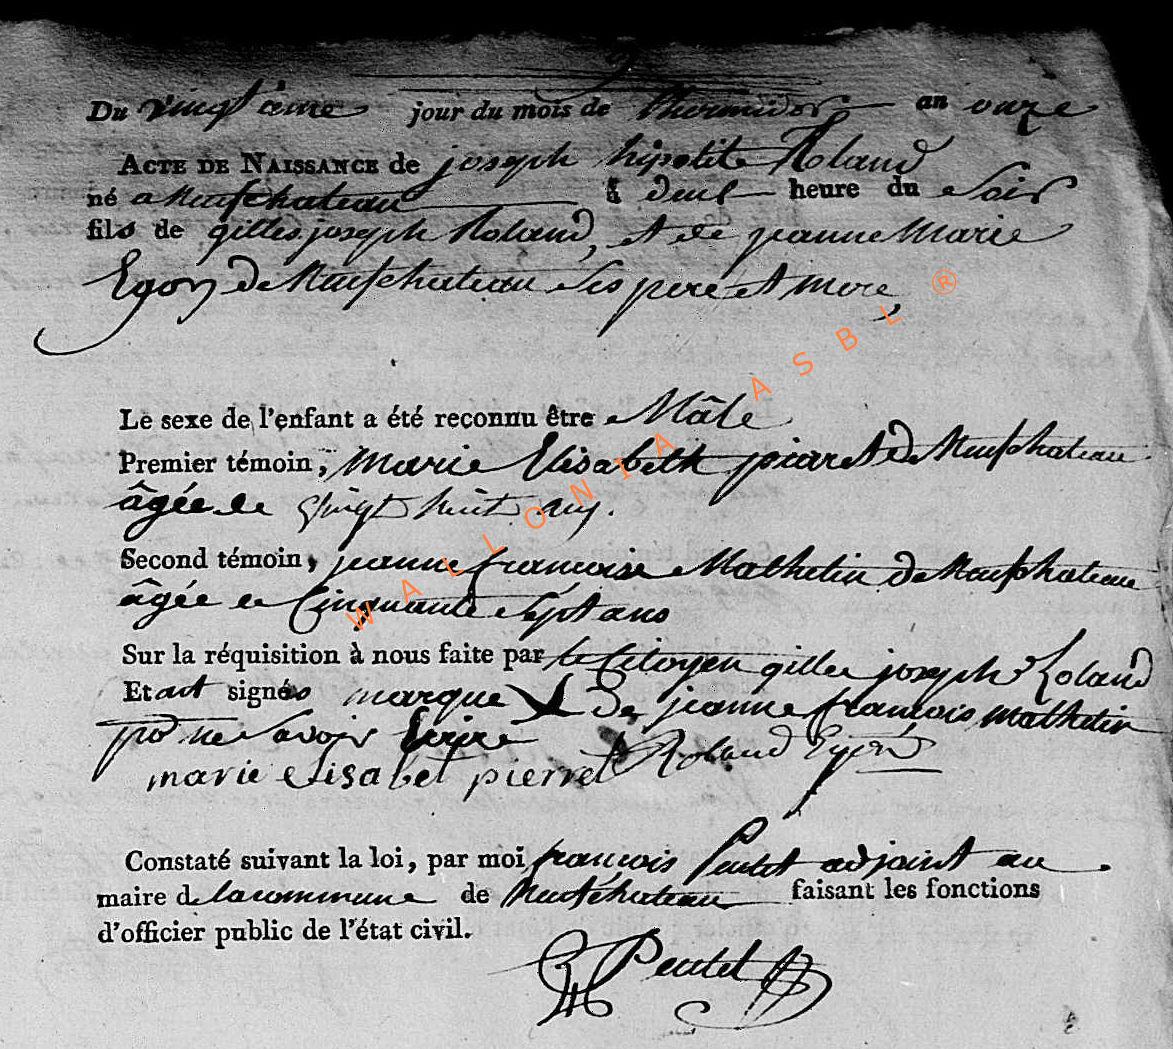 Du vingtieme jour du mois de thermidor an onze
ACTE DE NAISSANCE de joseph hipolite Roland
né a Neufchateau à deux heure du Soir
fils de gilles joseph Roland, et de jeanne Marie
Egon de Neufchateau Ses pere et mere
Le sexe de l'enfant a été reconnu être Mâle
Premier témoin, Marie Elisabeth piaret de Neufchateau
âgée de vingt huit ans.
Second témoin, jeanne françoise Mathelin de Neufchateau
âgée de Cinquante Sept ans
Sur la réquisition à nous faite par le Citoyen gille joseph Roland
Et ont signés marque de jeanne françois mathelin
pour ne Savoir Ecrire
marie elisabet pierret Roland
Constaté suivant la loi, par moi françois Pentel adjoint au
maire de la commune de Neufchateau faisant les fonctions
d'officier public de l'état civil.
Pentel
WALLONIA ASBL ®